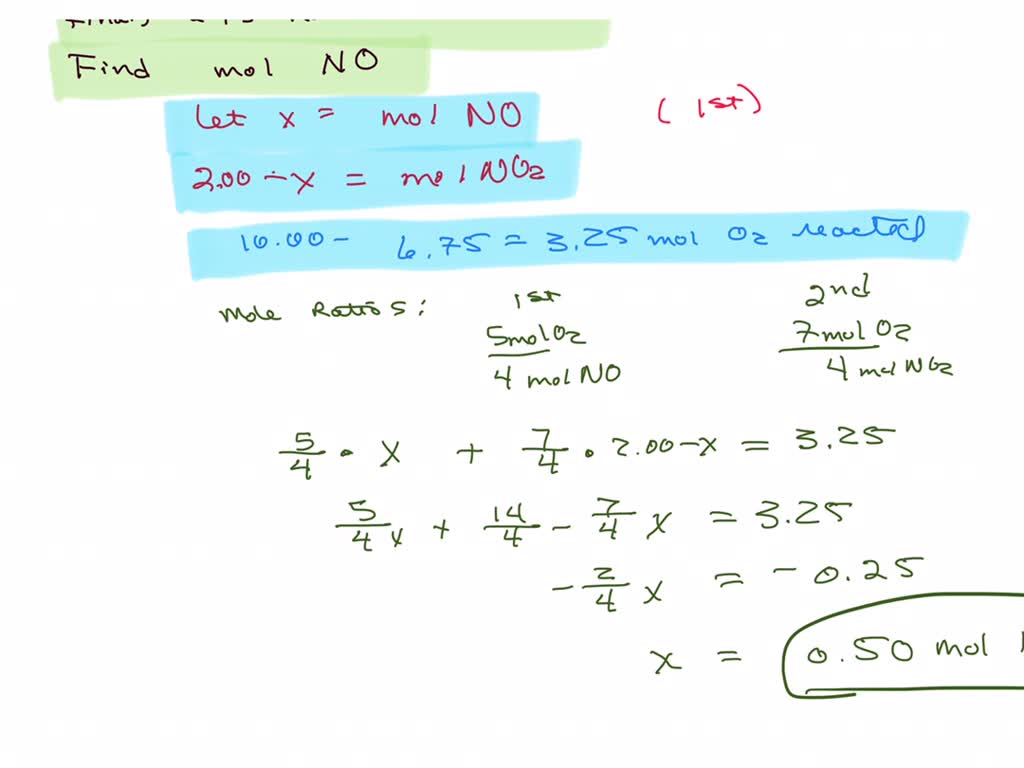 Find mol NO
Let x = mol NO (1st)
2.00 - x = mol NO2
10.00 - 6.75 = 3.25 mol O2 reacted
Mole Ratios: 1st 2nd
5 mol O2 7 mol O2
4 mol NO 4 mol NO2
5/4 • x + 7/4 • 2.00 - x = 3.25
5/4 x + 14/4 - 7/4 x = 3.25
- 2/4 x = - 0.25
x = 0.50 mol